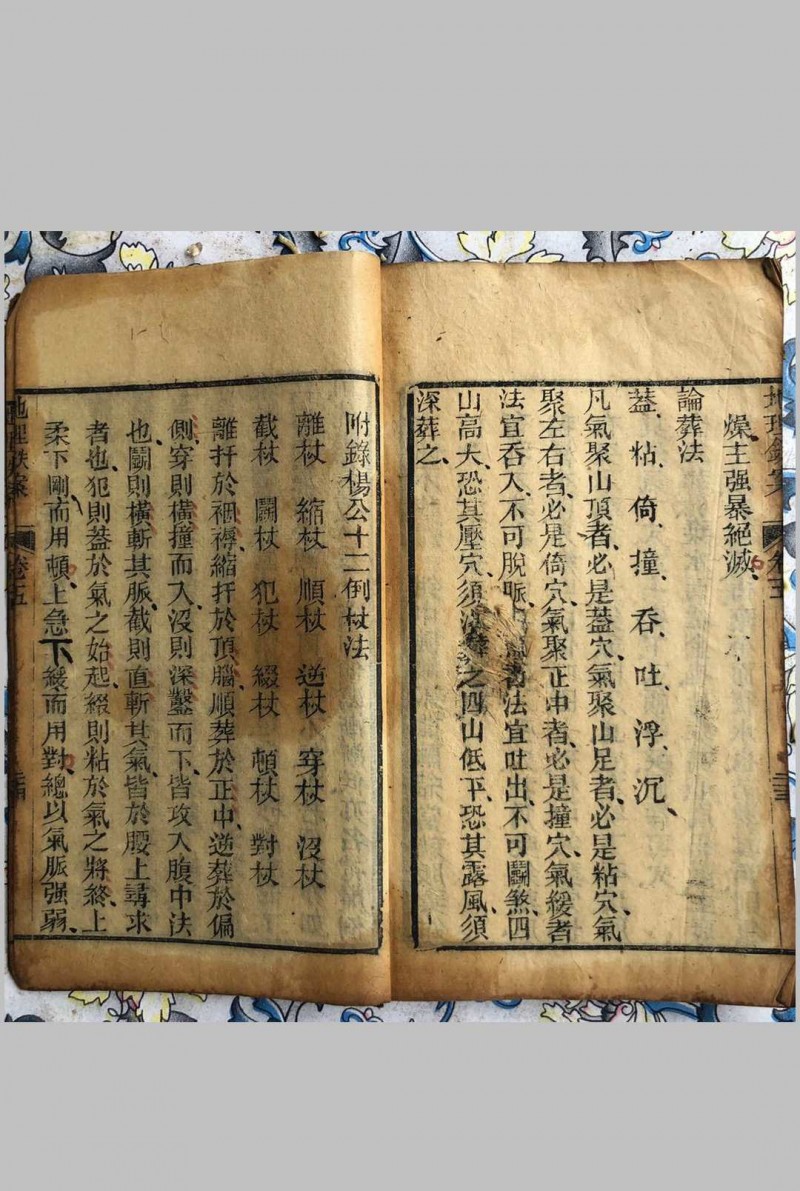 燥主强暴絕滅、
論葬法
葢、粘、倚、撞、吞、吐、浮、沉、
凡氣聚山頂者、必是葢穴、氣聚山足者、必是粘穴、氣
聚左右者、必是倚穴、氣聚正中者、必是撞穴、氣緩者
法宜吞入、不可脫脈、氣 法宜吐出、不可鬭煞、四
山高大、恐其壓穴、須 之、四山低平、恐其露風、須
深葬之、
附錄楊公十二倒杖法
離杖 縮杖 順杖 逆杖 穿杖 沒杖
截杖 鬭杖 犯杖 綴杖 頓杖 對杖
離扦於裀褥、縮扦於頂腦、順葬於正中、逆葬於偏
側、穿則橫撞而入、沒則深鑿而下、皆攻入腹中法
也、鬭則橫斬其脈、截則直斬其氣、皆於腰上尋求
者也、犯則葢於氣之始起、綴則粘於氣之將終、上
柔下剛、而用頓、上急下緩而用對、總以氣脈强弱、
卷五